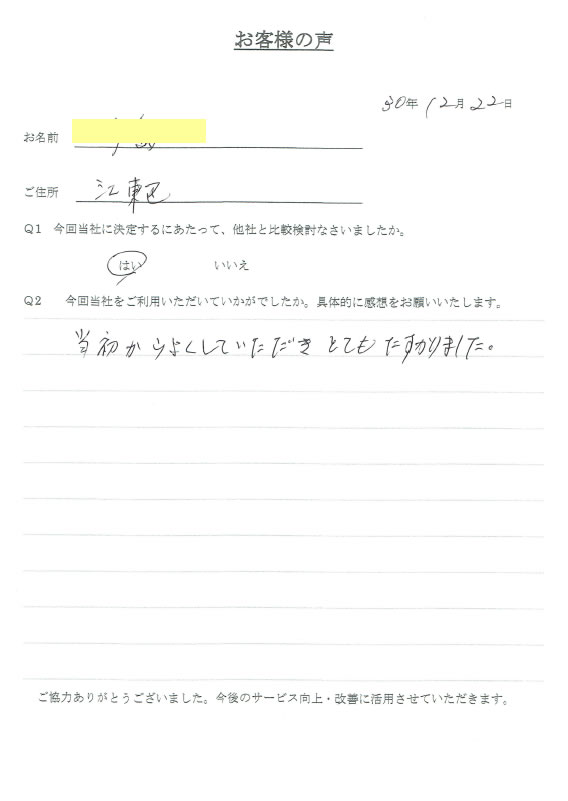 お客様の声
30年12月22日
お名前
ご住所 江東区
Q1 今回当社に決定するにあたって、他社と比較検討なさいましたか。
はい いいえ
Q2 今回当社をご利用いただいていかがでしたか。具体的に感想をお願いいたします。
当初からよくしていただきとてもたすかりました。
ご協力ありがとうございました。今後のサービス向上・改善に活用させていただきます。